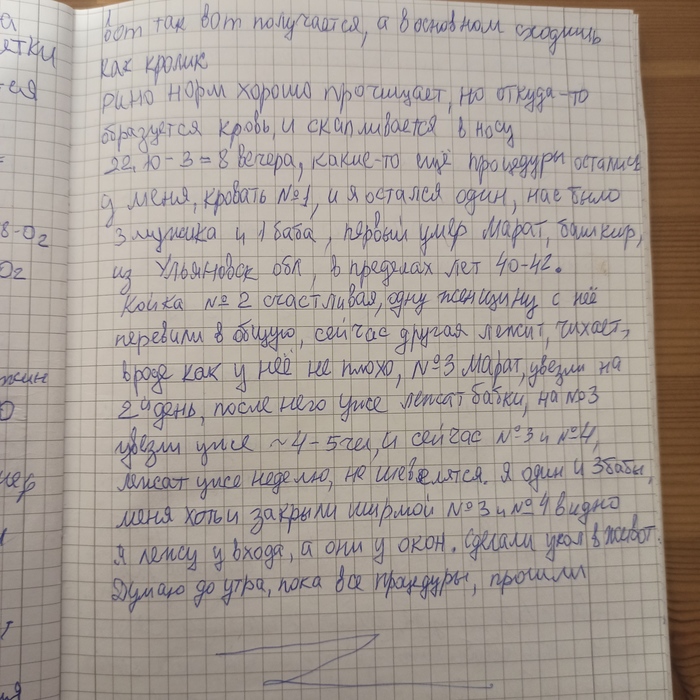 а
ятки
тся
8-02
02
вот так вот получается, а в основном сходишь
как кролик
Рино норм хорошо прочищает, но откуда-то
образуется кровь, и скапливается в носу
22.10-3=8 вечера, какие-то ещё процедуры остались
у меня, кровать №1, и я остался один, нас было
3 мужика и 1 баба, первый умер Марат, башкир,
из Ульяновск обл, в пределах лет 40-42.
Койка №2 счастливая, одну женщину с неё
перевили в общую, сейчас другая лежит, чихает,
вроде как у неё не плохо, №3 Марат, увезли на
2й день, после него уже лежат бабки, на №3
увезли уже ~4-5чел, и сейчас №3 и №4,
лежат уже неделю, не шевелятся. Я один и 3 бабы,
меня хоть и закрыли ширмой №3 и №4 видно
Я лежу у входа, а они у окон. Сделали укол в живот.
Думаю до утра, пока все процедуры, прошли